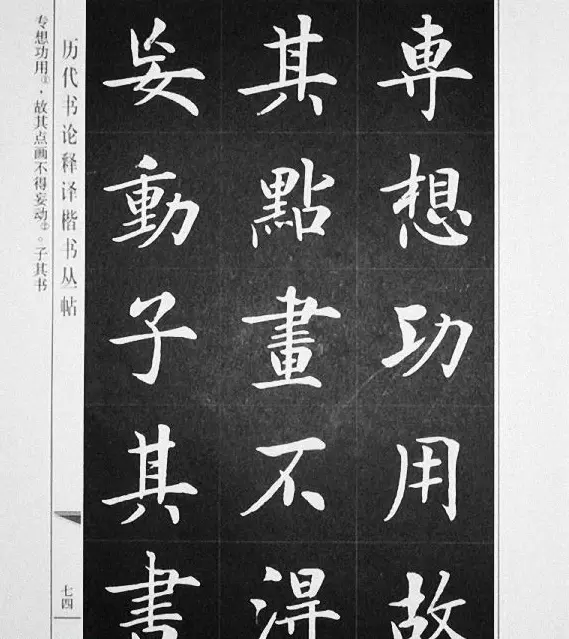 専想功用故
其點畫不淂
妄動子其書
历代书论释译楷书丛帖
七四
专想功用①，故其点画不得妄动②。子其书